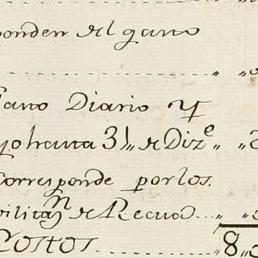 ponden el gano
fano Diario y
yo hasta 31,, de Diz.e
Corresponde por los.
vilitan de Recuad...
Costos........ 8,,